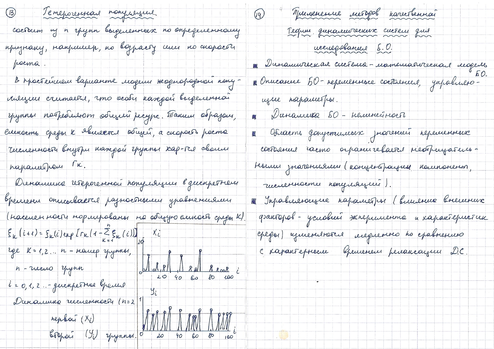 ⑬ Гетерогенная популяция
состоит из n групп выделенных по определенному
признаку, например, по возрасту или по скорости
роста.
В простейшем варианте модели неоднородной попу-
ляции считается, что особи каждой выделенной
группы потребляют общий ресурс. Таким образом,
емкость среды K является общей, а скорость роста
численности внутри каждой группы хар-ся своим
параметром rк.
Динамика гетерогенной популяции в дискретном
времени описывается разностными уравнениями
(численности нормированы на общую емкость среды K)
ξк(i+1)=ξк(i)exp{rк[1-Σξк(i)]}
где к=1,2... n - номер группы,
n - число групп
i=0,1,2... - дискретное время
Динамика численности (n=2
первой (Xi)
второй (Yi) группы.
Xi
20
20 40 60 80 100 i
Yi
20 40 60 80 100 i
Применение методов качественной
теории динамических систем для
исследования Б.О.
Динамическая система - математическая модель
БО.
Описание БО - переменные состояния, управляю-
щие параметры.
Динамика БО - нелинейность
Область допустимых значений переменных
состояния часто ограничивается неотрицатель-
ными значениями (концентрации компонента,
численности популяций).
Управляющие параметры (влияние внешних
факторов - условий эксперимента и характеристик
среды) изменяются медленно по сравнению
с характерным временем релаксации Д.С.